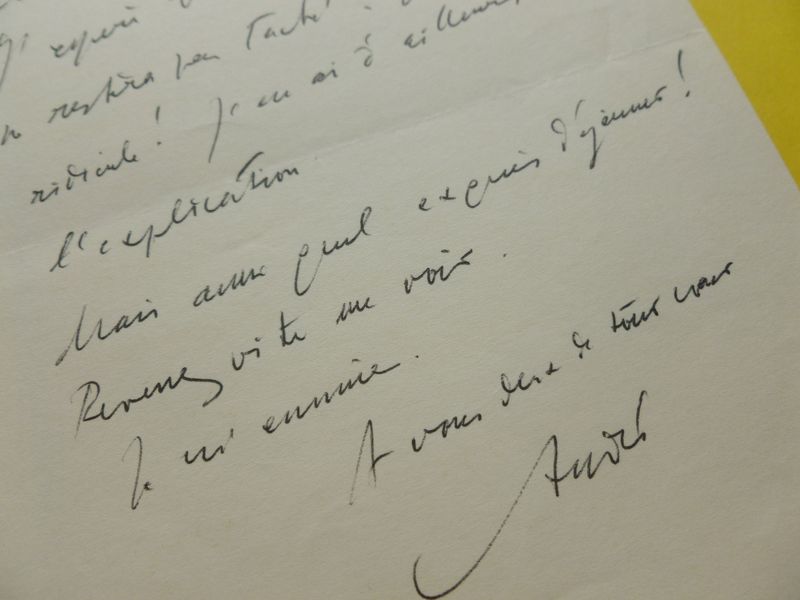 J'espère
restera pas
ridicule! J'en ai d'ailleurs
l'explication.
Mais aussi quel exquis déjeuner!
Revenez vite me voir.
Je m'ennuie.
A vous deux de tout cœur
André